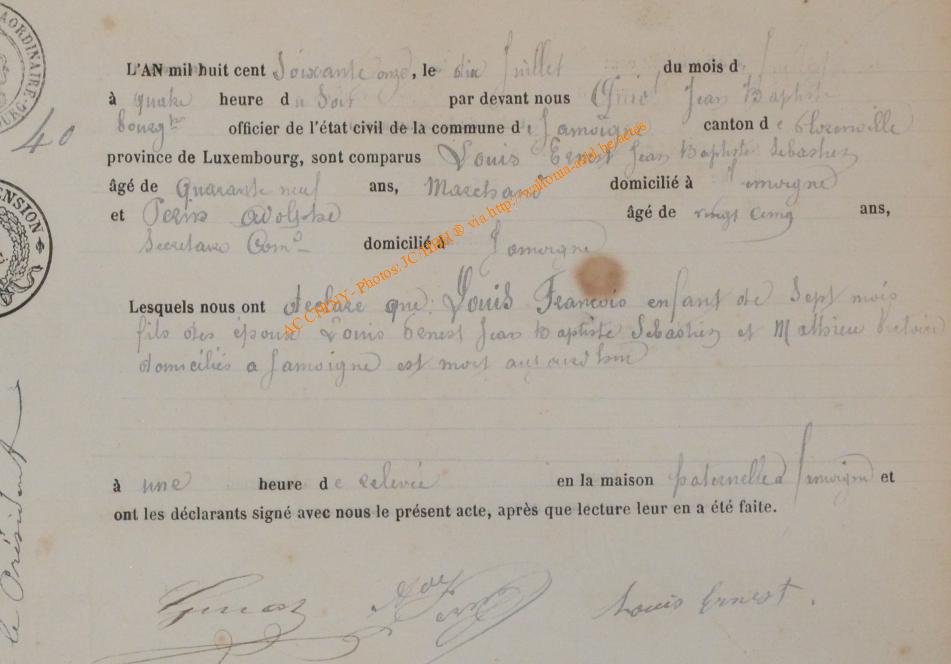 L'AN mil huit cent Soixante onze, le dix Juillet du mois d
à quatre heure du Soir par devant nous Jean Baptiste
40
bourg^tre officier de l'état civil de la commune d Jamoigne canton de Florenville
province de Luxembourg, sont comparus Louis Ernest Jean Baptiste Sebastien
âgé de Quarante neuf ans, Marchand domicilié à Jamoigne
et Perin adolphe âgé de vingt cinq ans,
Secretaire Com^l domicilié à Jamoigne
Lesquels nous ont declare que: Louis François enfant de Sept mois
fils des époux Louis Ernest Jean Baptiste Sebastien et Mathieu
domiciliés a Jamoigne est mort aujourdhui
à une heure de relevée en la maison paternelle a Jamoigne et
ont les déclarants signé avec nous le présent acte, après que lecture leur en a été faite.
Louis Ernest.
AC CHINY - Photos: JC HBM ® via http://
RAORDINAIRE
ENSION
le Président